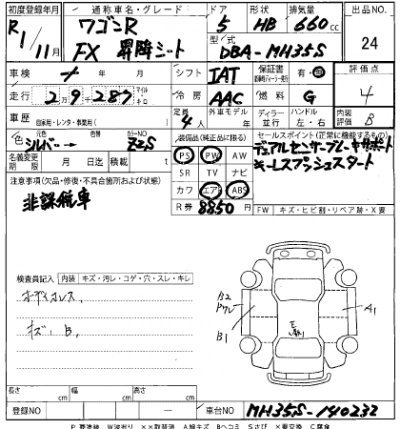 初度登録年月 通称車名・グレード ドア 形状 排気量 出品NO.
R1/11月 ワゴンR FX 昇降シート 5 HB 660cc 24
型式 DBA-MH35S
車検 年 月 シフト IAT 保証書 有・無 評価点 4
走行 2 9 287 マイル Km 冷房 AAC 燃料 G
車歴 自家用・レンタ・事業用( ) 定員 4人 外車モデル 年 ディーラー 並行 ハンドル 左・右 内装評価 B
色 元色 シルバー → カラーNO Z2S
名義変更期限 月 日迄 積載 t
装備品(純正品に限る)
PS PW AW
SR TV ナビ
カワ エアB ABS
R券 8850円
セールスポイント(正常に機能するもの)
デュアルセンサーブレーキサポート
キーレスプッシュスタート
注意事項(欠品・修復・不具合箇所および状態)
非課税車
FW キズ・ヒビ割・リペア跡・X要
検査員記入 内装 キズ・汚レ・コゲ・穴・スレ・キレ
オーディオレス,
キズ, B,
B2
B1
A1
長さ cm 幅 cm 高さ cm
登録NO — 車台NO MH35S-140232
P 要塗装 W波有り ××取替済 A線キズ Bヘコミ Sさび ×要交換 C腐食